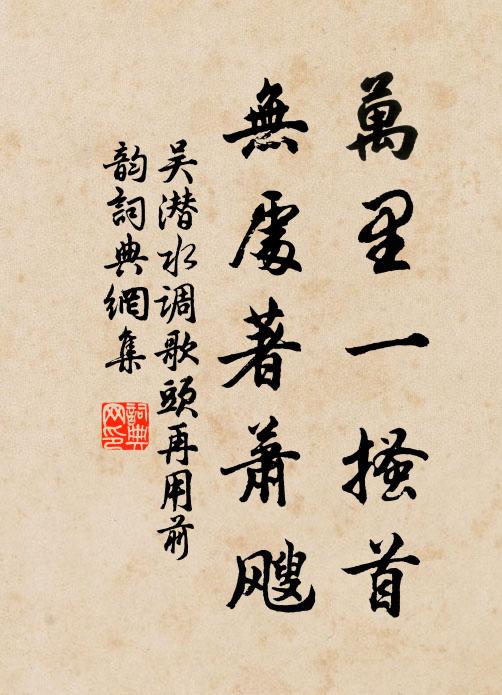 萬里一搔首
無處著蕭飕
吴潜水调歌頭再用前
韵詞典網集
詞典
网印